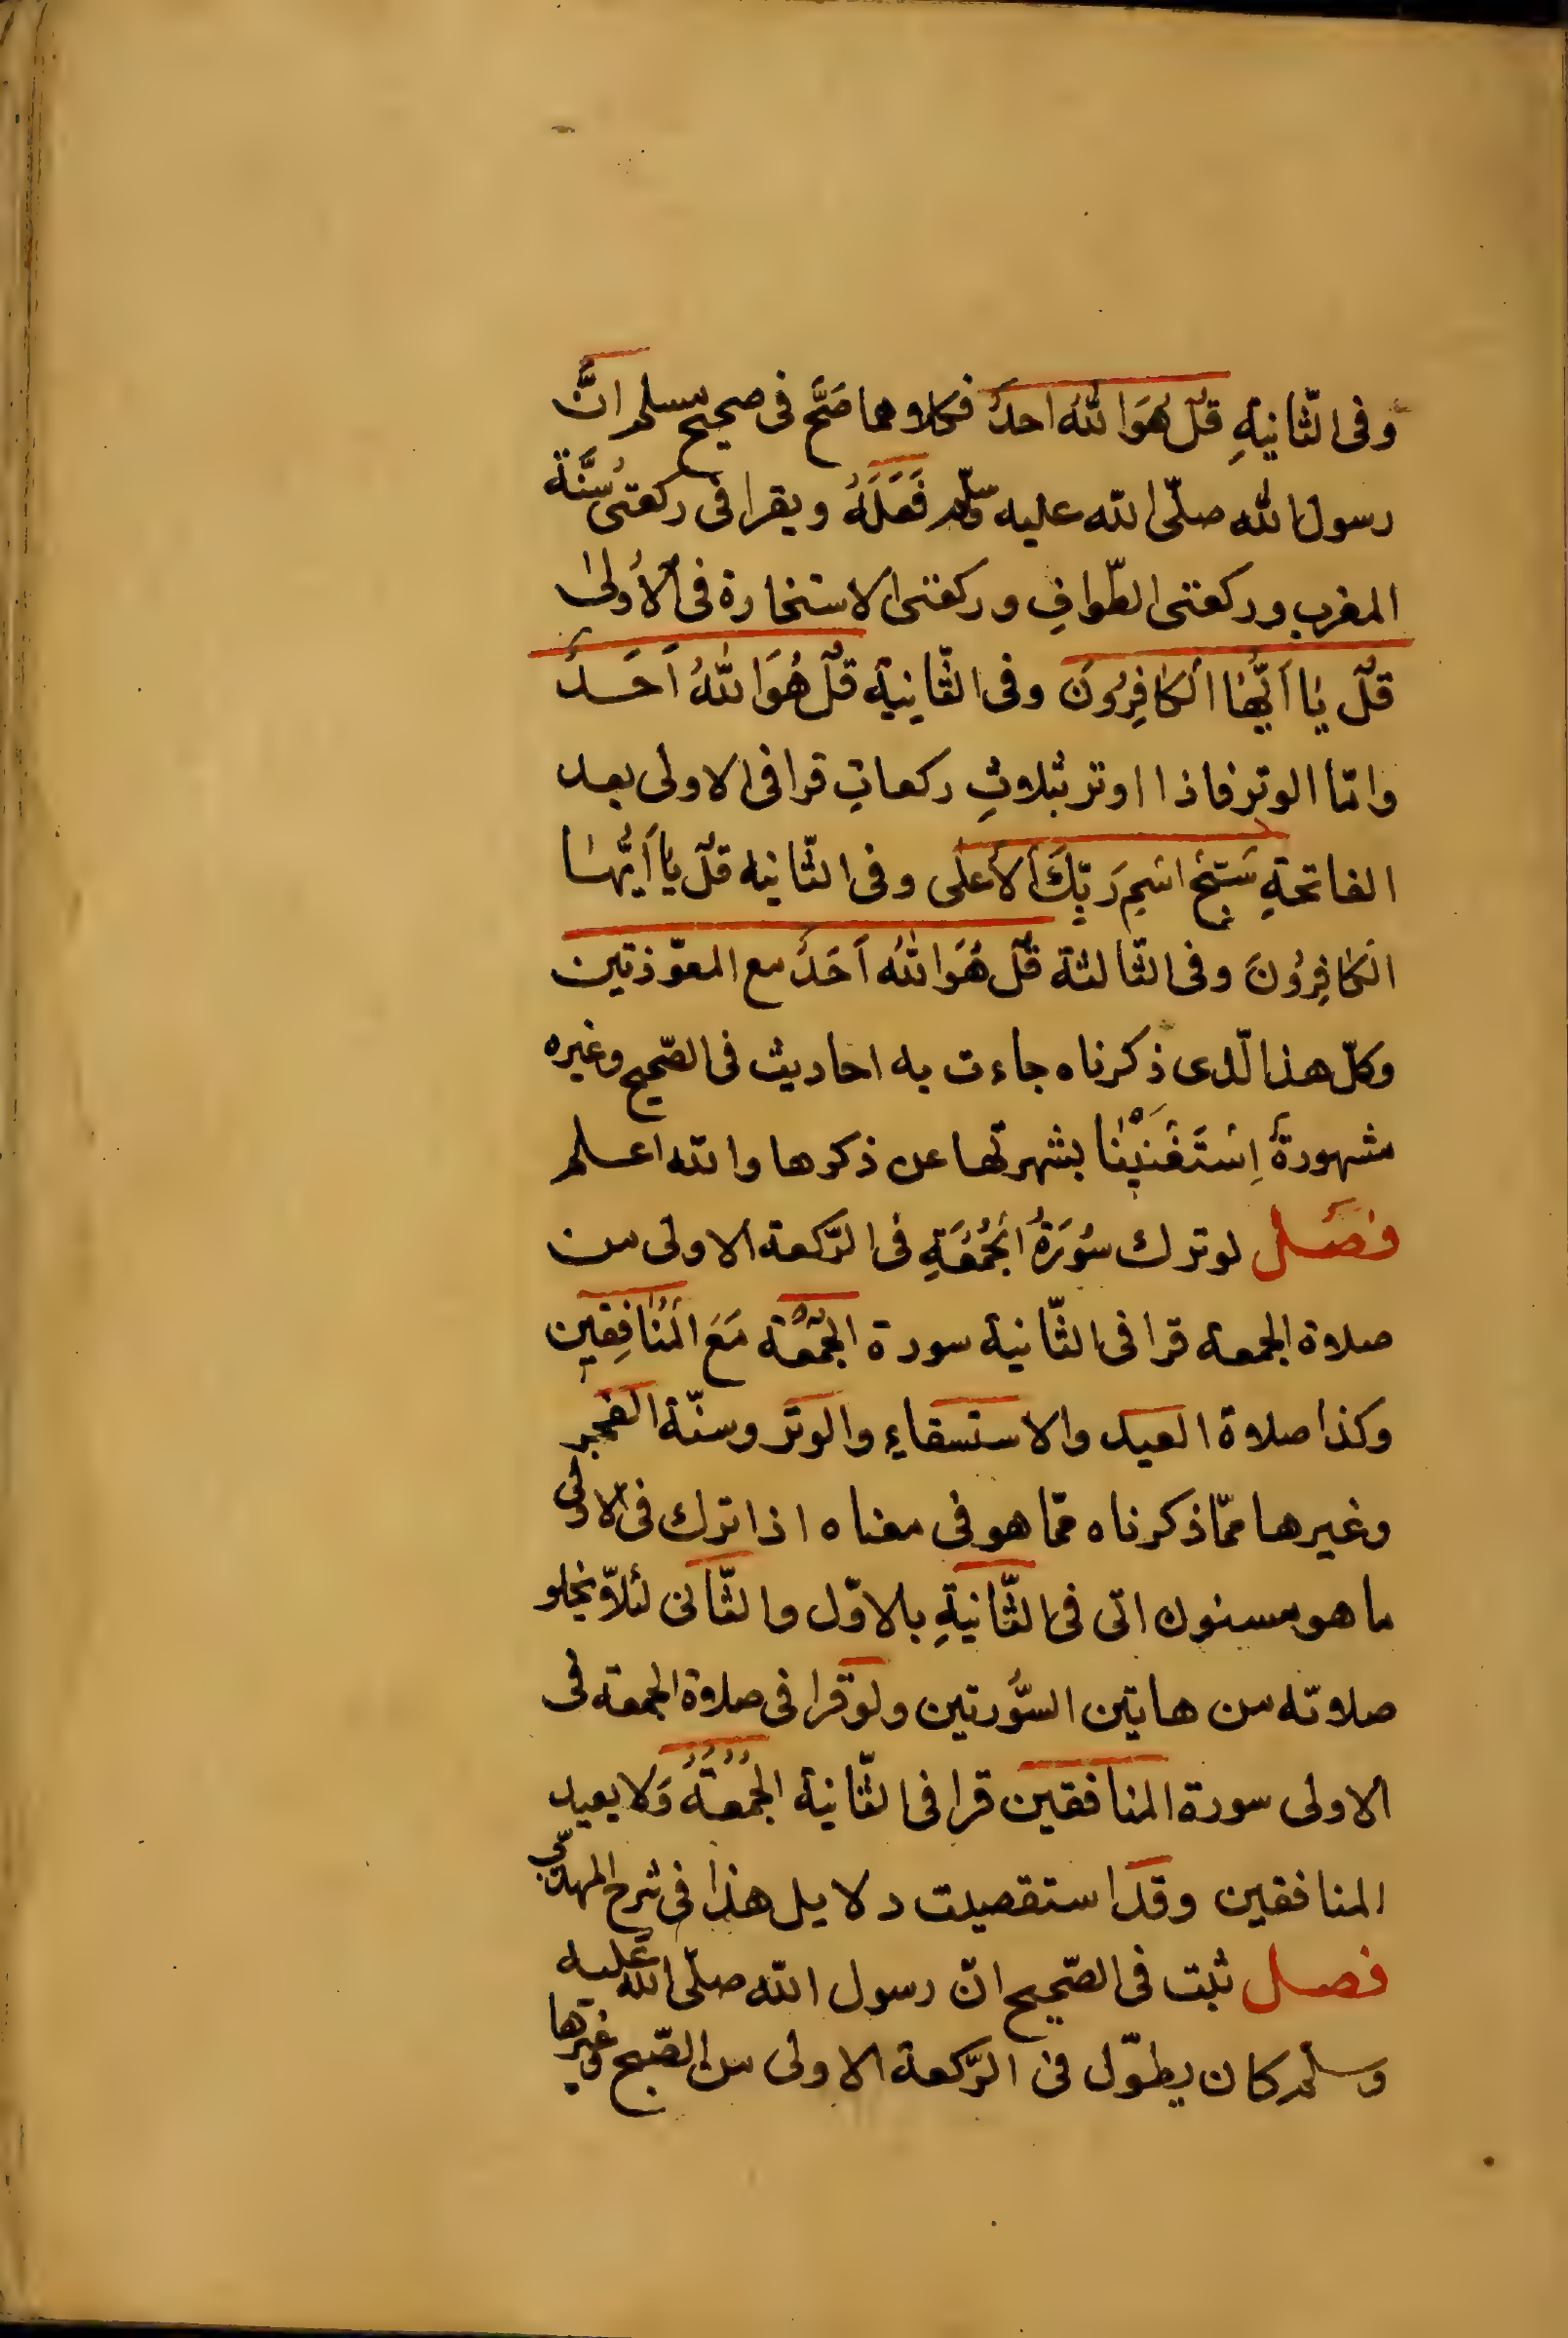 وفى الثّانيةِ قُلْ هُوَ اللّٰهُ احدٌ فكلاهما صَحَّ فى صحيح مسلم انَّ
رسول الله صلّى الله عليه وسلّم فَعَلَهُ ويقرا فى ركعتى سُنَّة
المغرب وركعتى الطّوافِ وركعتى الاستخارة فى الأُولىٰ
قُلْ يٰا اَيُّهٰا الْكٰافِرُونَ وفى الثّانية قُلْ هُوَ اللّٰهُ اَحَدٌ
وامّا الوتر فاذا اوتر بثلاثِ ركعاتٍ قرا فى الاولى بعد
الفاتحةِ سَبِّحْ اسْمِ رَبِّكَ الأَعلَى وفى الثّانيه قُلْ يٰا اَيُّهَا
الكٰافِرُونَ وفى الثّالثة قُلْ هُوَ اللّٰهُ اَحَدٌ مع المعوّذتين
وكلّ هذا الّذى ذكرناه جاءت به احاديث فى الصّحيح وغيره
مشهورةٌ اِسْتَغْنَيْنٰا بشهرتها عن ذكرها والله اعلم
فَصْل لو ترك سُورَةُ الْجُمُعَةِ فى الرّكعة الاولى من
صلاة الجمعه قرا فى الثّانية سورة الجُمُعَة مَعَ الْمُنٰافِقِين
وكذا صلاة العيد والاستسقاءِ والوتر وسنّة الفجر
وغيرها ممّا ذكرناه ممّا هو فى معناه اذا ترك فى الاولى
ما هو مسنون اتى فى الثّانيةِ بالاوّل والثّانى لئلّا يخلو
صلاته من هاتين السُّورتين ولو قرا فى صلاة الجمعة فى
الاولى سورة المنافقين قرا فى الثّانية الجُمُعَةُ وَلا يعيد
المنافقين وقد استقصيت دلايل هذا فى شرح المهذّب
فصل ثبت فى الصّحيح انّ رسول الله صلّى الله عَليه
وسلم كان يطوّل فى الرّكعة الاولى من الصّبح وغيرها